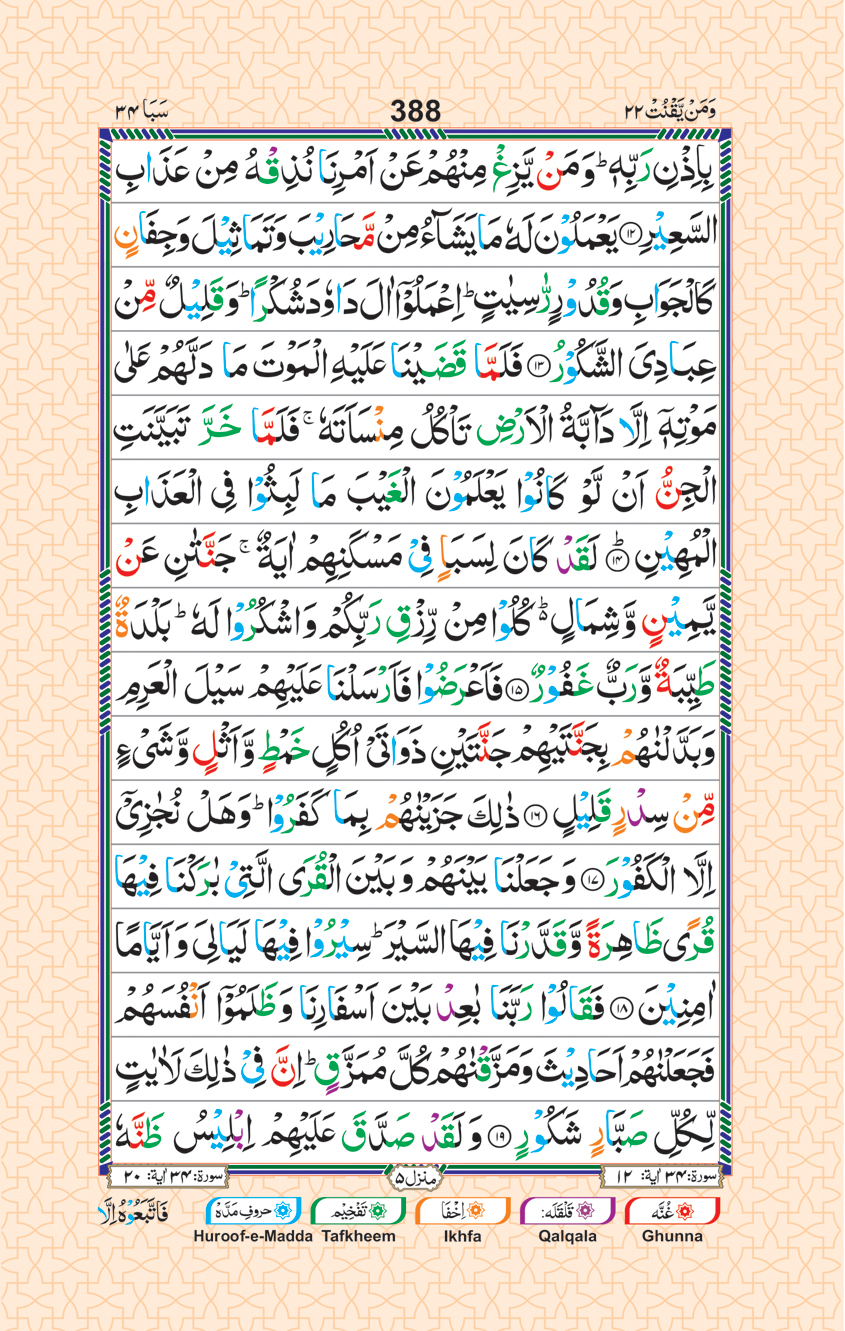 وَمَنْ يَّقْنُتْ ۲۲ 388 سَبَا ۳۴
بِاِذْنِ رَبِّهٖ ؕ وَمَنْ يَّزِغْ مِنْهُمْ عَنْ اَمْرِنَا نُذِقْهُ مِنْ عَذَابِ
السَّعِيْرِ ۝۱۲ يَعْمَلُوْنَ لَهٗ مَا يَشَآءُ مِنْ مَّحَارِيْبَ وَتَمَاثِيْلَ وَجِفَانٍ
كَالْجَوَابِ وَقُدُوْرٍ رّٰسِيٰتٍ ؕ اِعْمَلُوْۤا اٰلَ دَاوٗدَ شُكْرًا ؕ وَقَلِيْلٌ مِّنْ
عِبَادِيَ الشَّكُوْرُ ۝۱۳ فَلَمَّا قَضَيْنَا عَلَيْهِ الْمَوْتَ مَا دَلَّهُمْ عَلٰى
مَوْتِهٖۤ اِلَّا دَآبَّةُ الْاَرْضِ تَاْكُلُ مِنْسَاَتَهٗ ۚ فَلَمَّا خَرَّ تَبَيَّنَتِ
الْجِنُّ اَنْ لَّوْ كَانُوْا يَعْلَمُوْنَ الْغَيْبَ مَا لَبِثُوْا فِى الْعَذَابِ
الْمُهِيْنِ ۝۱۴ؕ لَقَدْ كَانَ لِسَبَاٍ فِيْ مَسْكَنِهِمْ اٰيَةٌ ۚ جَنَّتٰنِ عَنْ
يَّمِيْنٍ وَّشِمَالٍ ؕ۬ كُلُوْا مِنْ رِّزْقِ رَبِّكُمْ وَاشْكُرُوْا لَهٗ ؕ بَلْدَةٌ
طَيِّبَةٌ وَّرَبٌّ غَفُوْرٌ ۝۱۵ فَاَعْرَضُوْا فَاَرْسَلْنَا عَلَيْهِمْ سَيْلَ الْعَرِمِ
وَبَدَّلْنٰهُمْ بِجَنَّتَيْهِمْ جَنَّتَيْنِ ذَوَاتَيْ اُكُلٍ خَمْطٍ وَّاَثْلٍ وَّشَيْءٍ
مِّنْ سِدْرٍ قَلِيْلٍ ۝۱۶ ذٰلِكَ جَزَيْنٰهُمْ بِمَا كَفَرُوْا ؕ وَهَلْ نُجٰزِيْۤ
اِلَّا الْكَفُوْرَ ۝۱۷ وَجَعَلْنَا بَيْنَهُمْ وَبَيْنَ الْقُرَى الَّتِيْ بٰرَكْنَا فِيْهَا
قُرًى ظَاهِرَةً وَّقَدَّرْنَا فِيْهَا السَّيْرَ ؕ سِيْرُوْا فِيْهَا لَيَالِيَ وَاَيَّامًا
اٰمِنِيْنَ ۝۱۸ فَقَالُوْا رَبَّنَا بٰعِدْ بَيْنَ اَسْفَارِنَا وَظَلَمُوْۤا اَنْفُسَهُمْ
فَجَعَلْنٰهُمْ اَحَادِيْثَ وَمَزَّقْنٰهُمْ كُلَّ مُمَزَّقٍ ؕ اِنَّ فِيْ ذٰلِكَ لَاٰيٰتٍ
لِّكُلِّ صَبَّارٍ شَكُوْرٍ ۝۱۹ وَلَقَدْ صَدَّقَ عَلَيْهِمْ اِبْلِيْسُ ظَنَّهٗ
سورة: ۳۴ اٰية: ۱۲ منزل ۵ سورة: ۳۴ اٰية: ۲۰
غُنَّه قَلْقَلَه: اِخْفَا تَفْخِيْم حروف مَدَّه فَاتَّبَعُوْهُ اِلَّا
Huroof-e-Madda Tafkheem Ikhfa Qalqala Ghunna